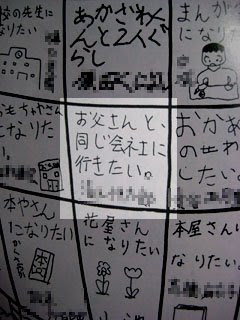 校の先生に
なりたい
あかざわく
んと2人ぐ
らし
まんが
になりたい
おもちゃさん
になりたい
お父さんと、
同じ会社に
行きたい。
おかあ
のせわ
したい。
本やさん
になりたい
花屋さん
になりたい
本屋さん
なりたい。